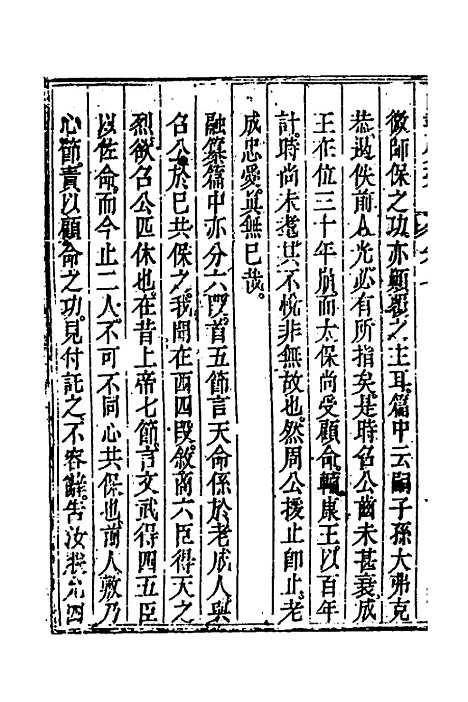 微師保之功亦顯翼之主耳篇中云嗣子孫大弗克
恭過佚前人光必有所指矣是時召公齒未甚衰成
王在位三十年崩而太保尚受顧命輔康王以百年
計時尚未耆其不悅非無故也然周公援止即止老
成忠愛眞無已哉
融纂篇中亦分六段首五節言天命係於老成人與
召公於已共保之我聞在四四段敘商六臣得天之
烈欲召公匹休也在昔上帝七節言文武得四五臣
以佐命而今止二人不可不同心共保也前人敷乃
心節責以顧命之功見付託之不容辭告汝朕允四